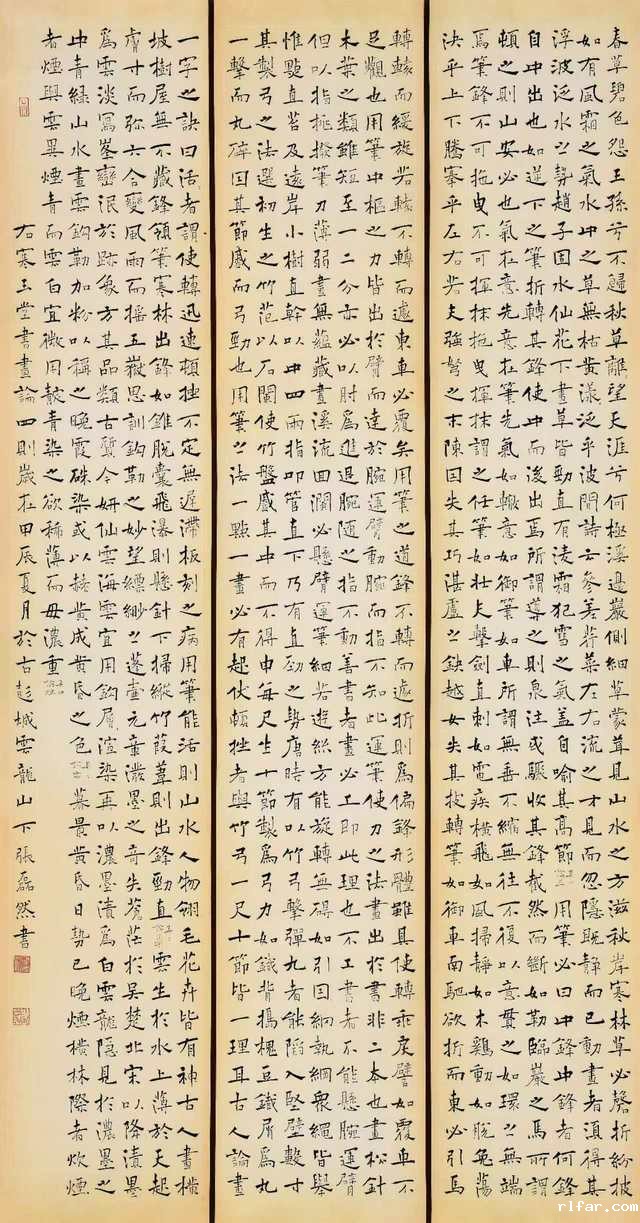 春草碧色怨王孫兮不歸草離望天涯兮何極溪邊細草蒙茸見山水之方滋岸寒林草折紛披
如有風霜之氣水中之草無枯黄漾泛乎波間詩云參差荇菜左右流之才見而忽隱既静而已動畫者須得其
浮波泛水之勢趙子固水仙花下畫草皆勁直有淩霜犯雪之氣蓋自喻其髙節用筆必曰中鋒中鋒者何鋒
自中出也如道下之筆折轉其鋒使中而後出焉所謂導之則泉注或驟收其鋒截然而斷如勒臨巖之馬所謂
頓之則山安必也氣在意先意在筆先氣如轍意如御筆如車所謂無垂不縮無往不復以意貫之如環之無端
焉筆鋒不可拖曳不可揮抹拖曳揮抹謂之任筆如壯夫擊劍直刺如電疾横飛如風掃静如木鷄動如脱兔蕩
決乎上下騰搴乎左右若夫強弩之末陳因失其巧湛盧之鈌越女失其技轉筆如御車南馳欲折而東必引馬
轉轅而緩旋若轅不轉而遽東車必覆矣用筆之道鋒不轉而遽折則爲偏鋒形體雖具使轉乖戾譬如覆車不
足觀也用筆中樞之力皆出於臂而達於腕運臂動腕而指不知此運筆使刀之法畫出於書非二本也畫松針
木葉之類雖短至一二分亦必以肘爲進退腕随之指不動善書者畫必工即此理也不工書者不能懸腕運臂
但以指挑撥筆刀薄弱畫無藴藏畫溪流回瀾必懸臂運筆細若遊絲方能旋轉無碍如引因綱執綱衆繩皆舉
惟點苔及遠岸小樹直幹以中四兩指叩管直下乃有直勁之勢唐時有以竹弓擊彈丸者能陷入堅壁數寸
其製弓之法選初生之竹范以石闌使竹盤感其中而不得申每尺生十節製爲弓力如鐵背搗槐豆鐵屑爲丸
一擊而丸碎因其節感而弓勁也用筆之法一點一畫必有起伏頓挫者與竹弓一尺十節皆一理耳古人論畫
一字之訣曰活活者謂使轉迅速頓挫不定無遲滯板刻之病用筆能活則山水人物翎毛花卉皆有神古人畫横
坡樹屋無不藏鋒領筆寒林出鋒如錐脱囊飛瀑則懸針下掃縱竹葭葦則出鋒勁直雲生於水上薄於天起
膚寸而弥六合變風雨而摇五嶽思訓鈎勒之妙望縹緲之蓬壺元章潑墨之奇失蒼茫於吴楚北宋以降漬墨
爲雲淡寫峯巒泯於跡象方其品類古質今妍仙雲海雲宜用鈎屑渲染再以濃墨漬爲白雲龍隱見於濃墨之
中青緑山水畫雲鈎勒加粉以稱之晚霞硃染或以赭黄成黄昏之色暮景黄昏日勢已晚煙横林際者炊煙
者煙與雲異煙青而雲白宜微用靛青染之欲稀薄而毋濃重
右寒玉堂書畫論四則歲在甲辰夏月於古彭城雲龍山下張磊然書
rlfar.com